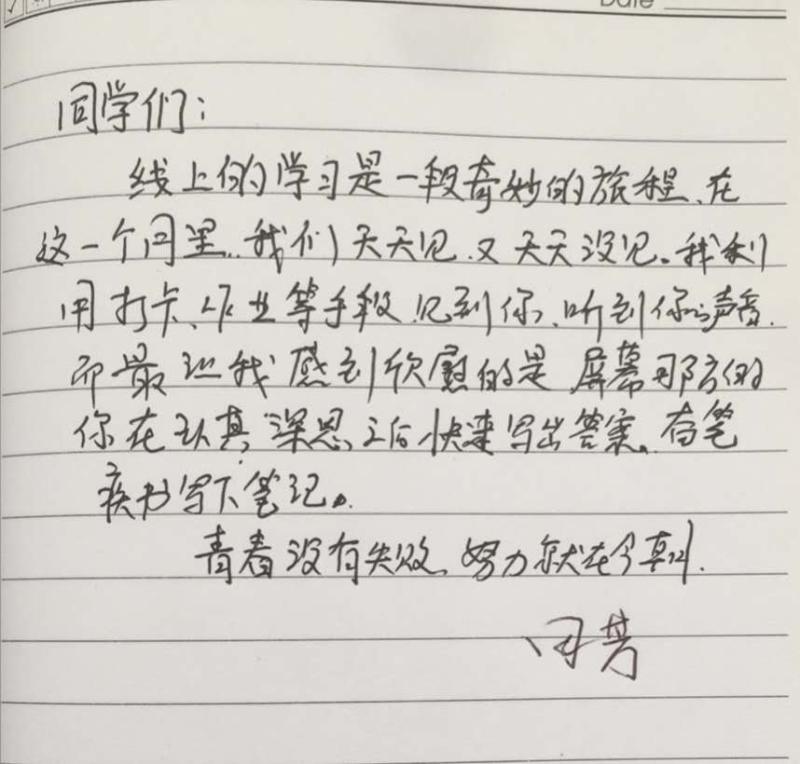 Date
同学们：
线上的学习是一段奇妙的旅程、在
这一个月里、我们天天见、又天天没见。我利
用打卡、作业等手段、见到你、听到你的声音.
而最让我感到欣慰的是屏幕那方的
你在认真深思之后快速写出答案、奋笔
疾书写下笔记。
青春没有失败、努力就在今朝.
芳